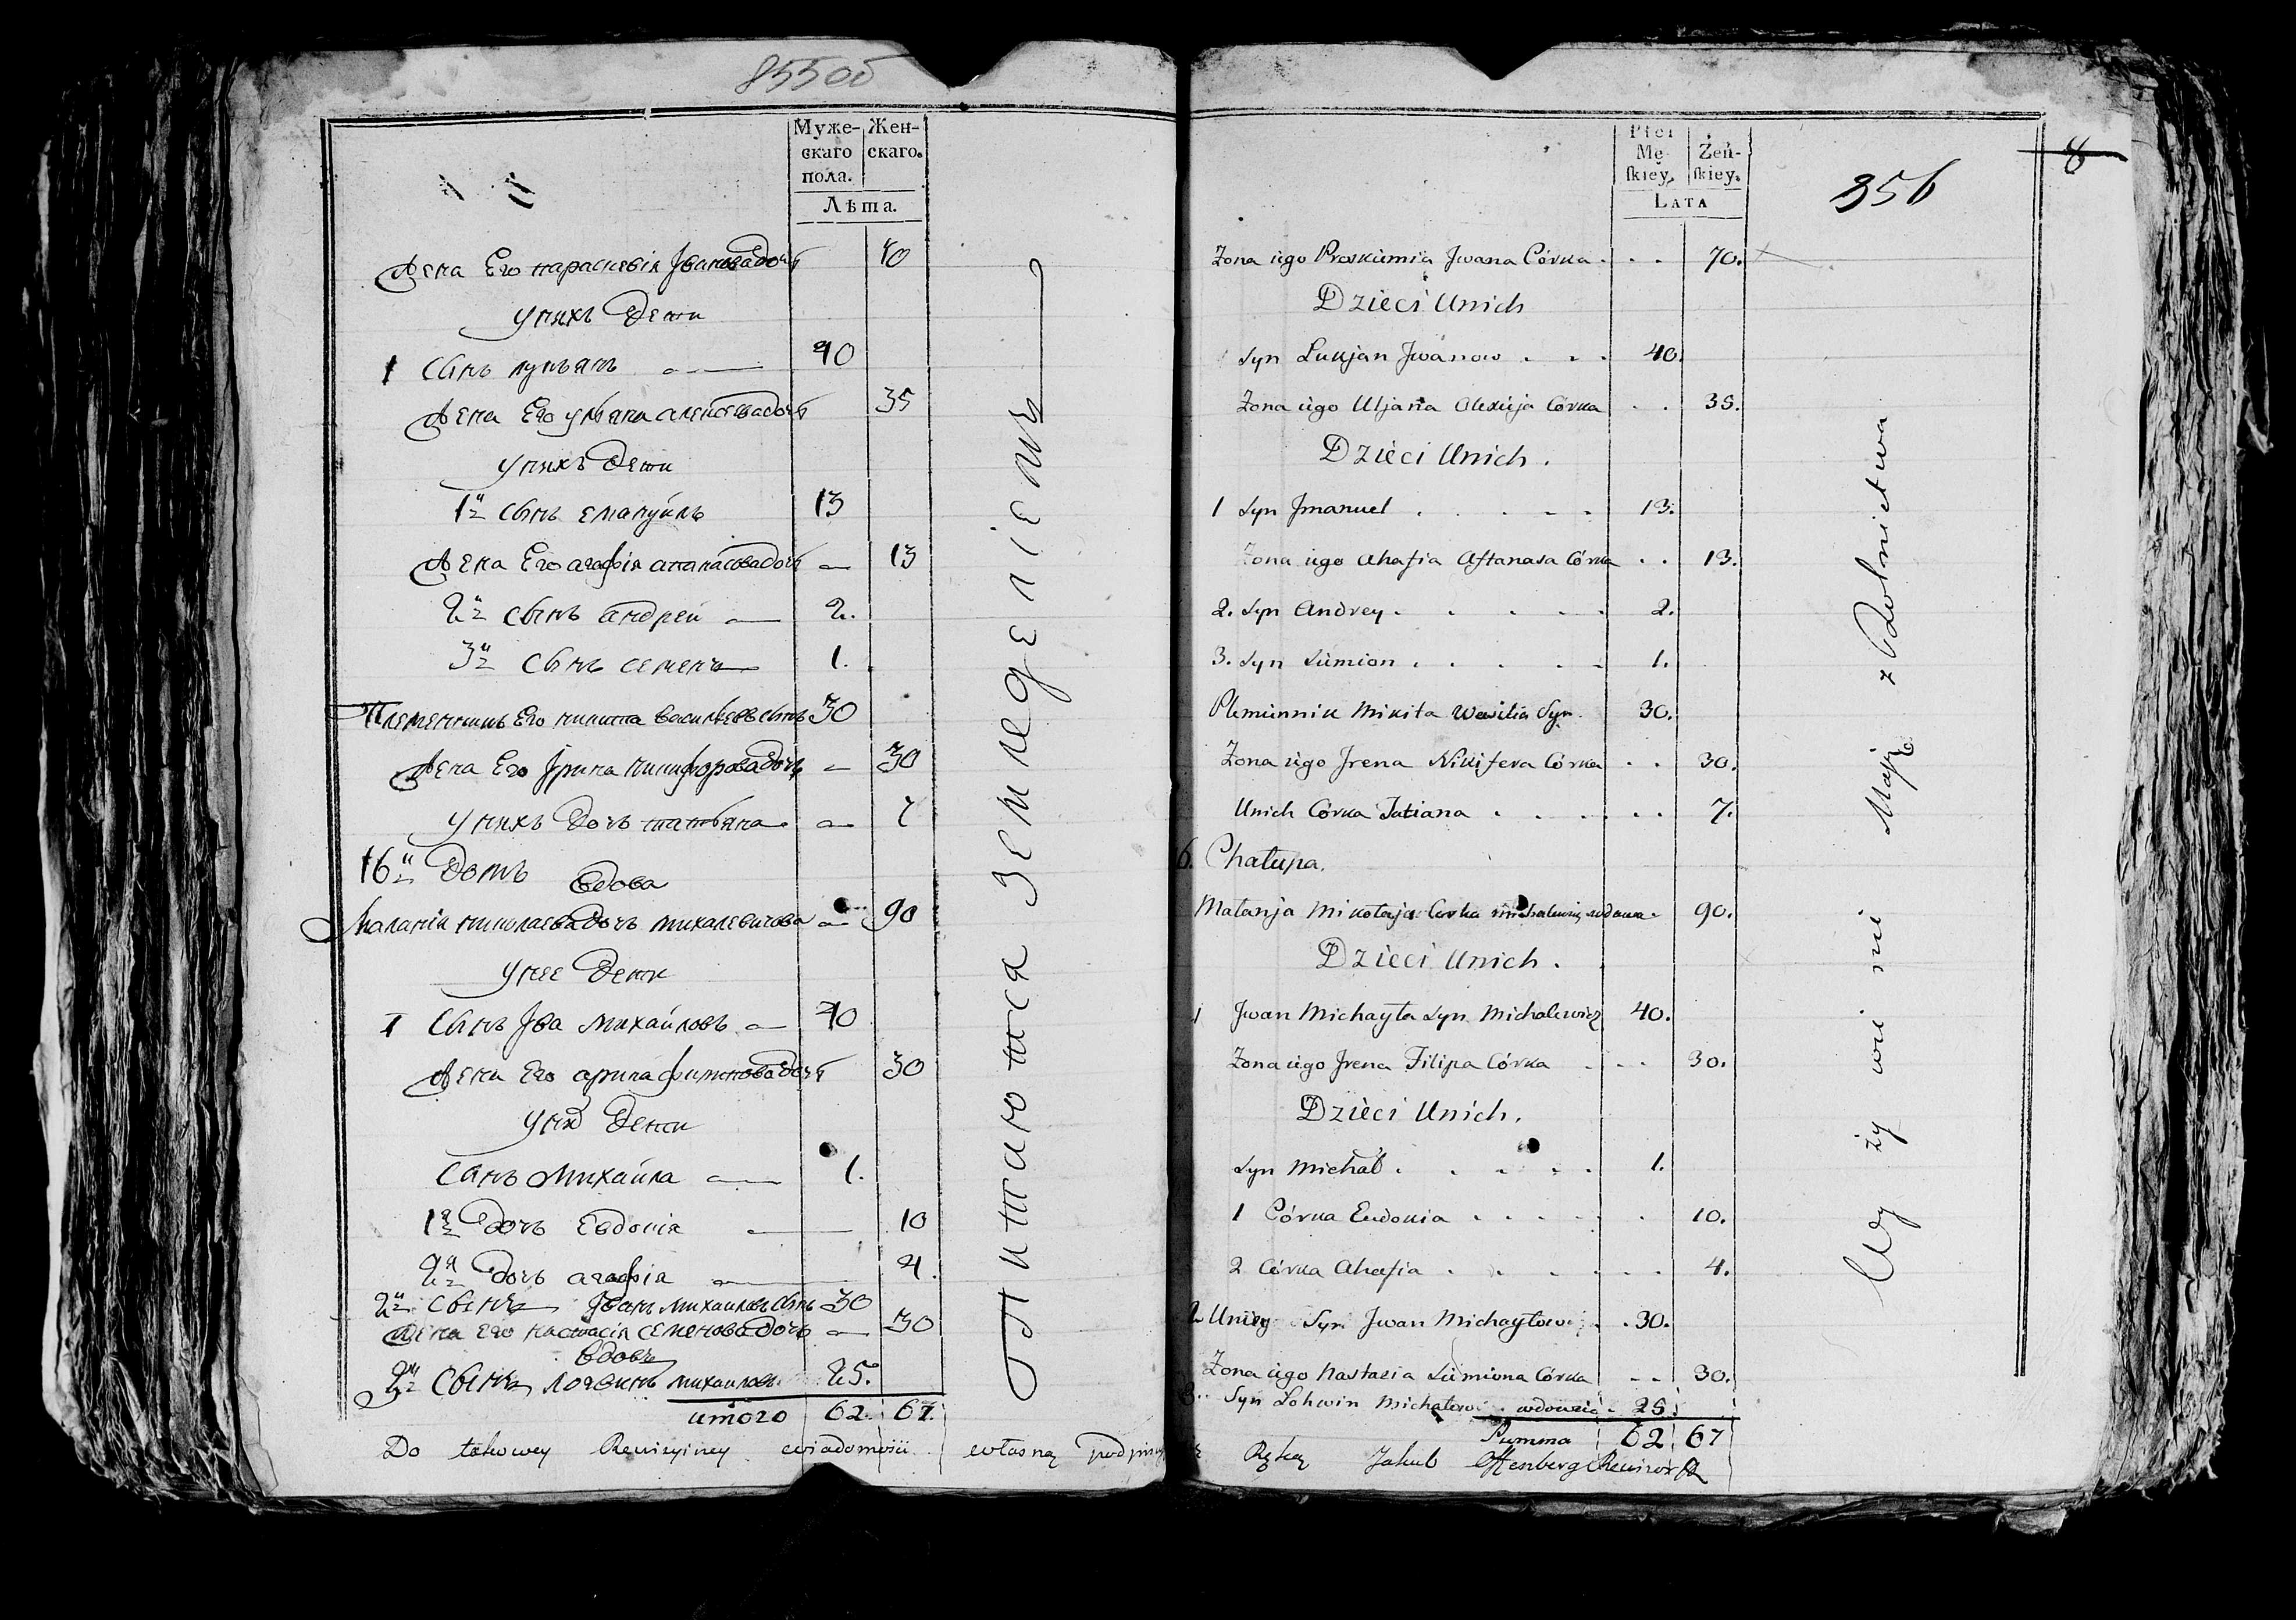 855об
Муже-
скаго
пола.
Жен-
скаго.
Лѣта.
Жена Его параскевія Ивановадочь 70
У нихъ Дети
1 Сынъ лукъянъ 40
Жена Его ульяна алексеевадочь 35
У нихъ Дети
1й Сынъ емануилъ 13
Жена Его агафія атанасовадочь 13
2й Сынъ андрей 2.
3й Сынъ семенъ 1.
Племенникъ Его никита васильевъ сынъ 30
Жена Его Ирина никифоровадочь 30
У нихъ Дочь татьяна 7
16й Домъ
вдова
Маланія николаевадочь михалевичова 90
У нее Дети
1 Сынъ Ива Михайловъ 40
Жена Его арина филиповадочь 30
У них Дети
Сынъ Михайла 1.
1я Дочь Евдокія 10
2я Дочь агафія 4.
2й Сынъ Иванъ михаиловъ сынъ 30
Жена Его настасія семеновадочь 30
вдовъ
Сынъ логвинъ михаиловъ 25.
итого 62. 67.
Питаются земледеліемъ
Do takowey Rewizyiney wiadomości własną podpisuię Ręką Jakub Offenberg Rewizor
8
856
Płci
Mę-
skiey.
Żeń-
skiey.
LATA
Zona iego Proskumia Jwana Córka . . . 70.
Dzieci Unich
1 Syn Łukjan Jwanow . . . 40.
Zona iego Uljana Alexieja Córka . . 35.
Dzieci Unich.
1 Syn Jmanuel . . . . . 13.
Zona iego Ahafia Aftanasa Córka . . 13.
2. Syn Andrey . . . . . 2.
3. Syn Siemion . . . . . 1.
Plemiennik Mikita Wasilia Syn. 30.
Zona iego Jrena Nikifera Córka . . 30.
Unich Córka Tatiana . . . . . . 7.
6. Chałupa.
Małanja Mikołaja Corka wdowa 90.
Dzieci Unich.
1 Jwan Michayła Syn Michalewicz 40.
Zona iego Jrena Filipa Córka . . . 30.
Dzieci Unich.
Syn Michał . . . . . 1.
1 Córka Eudokia . . . . . 10.
2 Córka Ahafia . . . . . . 4.
2 Uniey Syn Jwan Michayłow . 30.
Zona iego Nastazia Siemiona Córka . . 30.
3. Syn Łohwin wdowiec 25.
Summa 62 67
Wy ży wie nie Mają z Rolnictwa